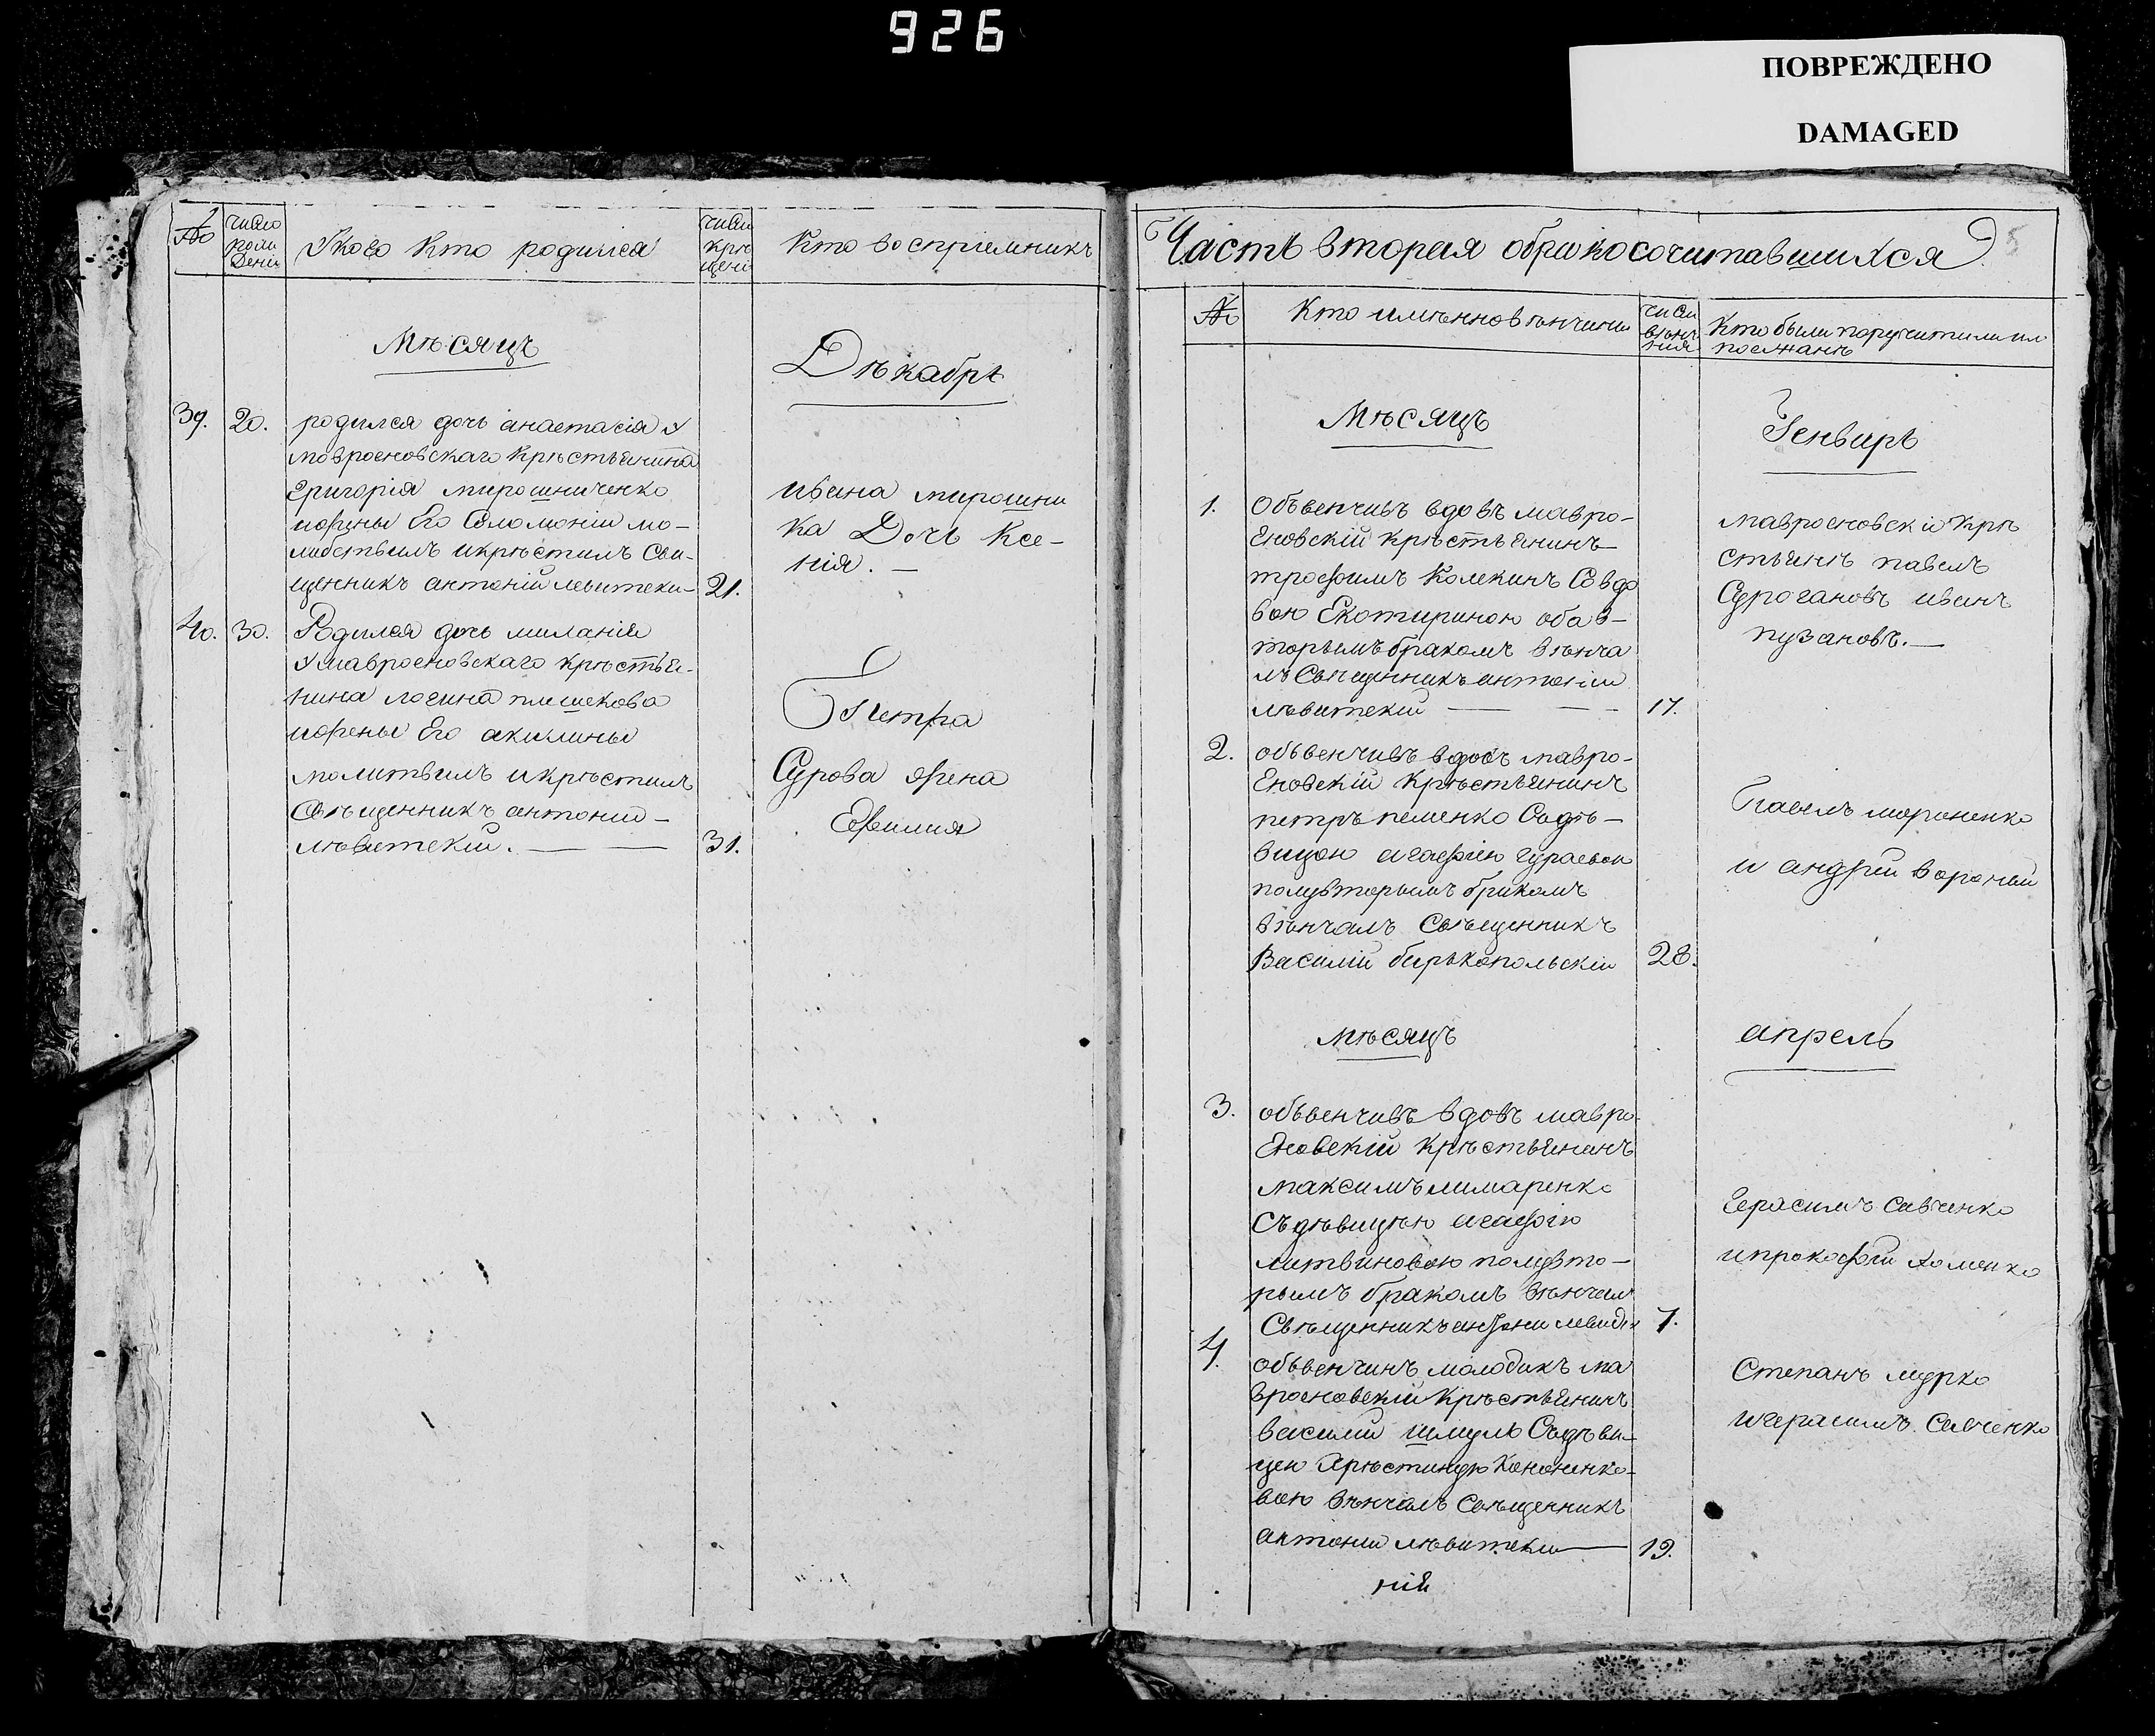 926
ПОВРЕЖДЕНО
DAMAGED
№
число рождения
Укого Кто родился
число крѣщени
Кто воспріемникъ
Мѣсяцъ
Дѣкабрѣ
39. 20.
родился дочь анастасія У
мовроеновскаго Крѣстьянина
григорія мирошниченко
ижены Его Соломоніи мо-
литвилъ икрѣстилъ Сви-
щенникъ антоній левитски- 21.
ивана мирошни
ка Дочь Ксе-
нія. —
40. 30.
Родился дочь миланія
Умавроеновскаго крѣстья-
нина логина плешекова
ижены Его акилины
молитвилъ икрѣстилъ
Свѣщенникъ антоній —
лѣвитскій. — — 31.
Петра
Сурова жена
Ефимия
Часть вторая обракосочитавшихся
5
№
Кто имѣнновѣнчини
числ вѣнчния
Кто были поручитили ил
поежанѣ
Мѣсяцъ
Генварь
1.
Объвенчивъ вдовъ мавро-
Еновскій крѣстьянинъ
трофимъ Колекинъ Совдо
вою Екотириною оба в-
торымъ бракомъ вѣнча
лъ Свѣщенникъ антоніи
лѣвитскій — — — 17.
мавроеновскіи крѣ
стьянѣ павелъ
Сурогановъ иванъ
пузановъ. —
2.
объвенчивъ вдовъ мавро-
Еновскій крѣстьянинъ
петръ пеменко Содѣ-
вицою агафіею гураевои
полувторымъ бракомъ
вѣнчалъ Свѣщенникъ
Василій бирькопольскіи 28.
Павелъ мороненко
и андрей вороный
мѣсяцъ
апрель
3.
объвенчивъ вдовъ мавро-
Еновскій крѣстьянинъ
максимъ лимаренко
Съдѣвицѣю агафію
литвиновою полувто-
рымъ бракомъ вѣнчалъ
Свѣщенникъ антони левидск 7.
Герасимъ Савченко
ипрокофій хоменко
4.
объвенчинъ молодикъ ма
вроеновскій Крѣстьянинъ
василій шмуль Содѣви-
цею Хрѣстиною Кононенко-
вою вѣнчалъ Свѣщенникъ
антони лѣвитски — 19.
ній
Степанъ мурко
игерасимъ Савченко